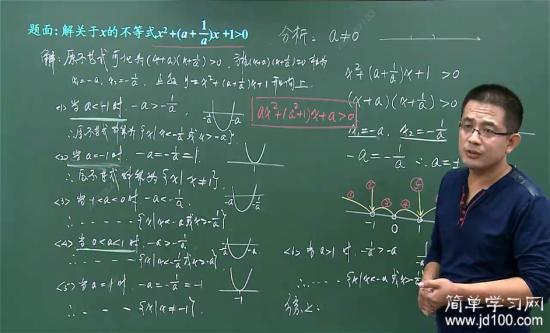 题面:解关于x的不等式x²+(a+1/a)x+1>0
分析: a≠0
解: 原不等式可化为(x+a)(x+1/a)>0, 方程(x+a)(x+1/a)=0
x₁=-a, x₂=-1/a, y=x²+(a+1/a)x+1 开口向上.
<1> 当a<-1时, -a>-1/a,
-1/a -a
∴原不等式解集为{x|x<-1/a 或 x>-a}
<2> 当a=-1时 -a=-1/a=1.
1
∴原不等式解集为{x|x≠1}.
<3> 当-1<a<0时, -a<-1/a
-a -1/a
∴ {x|x<-a或x>-1/a}
<4> 当0<a<1时, -a>-1/a
-1/a -a
∴ {x|x<-1/a或x>-a}
<5> 当a=1时 -a=-1/a=-1
-1
∴ {x|x≠-1}.
ax²+(a²+1)x+a>0
x²+(a+1/a)x+1>0
(x+a)(x+1/a)>0
x₁=-a, x₂=-1/a
-a=-1/a ∴a=±
-1 0 1
<6> 当a>1时, -1/a>-a
-a
∴ {x|x<-a或x>-1/a
综上:
简单学习网
www.jd100.com